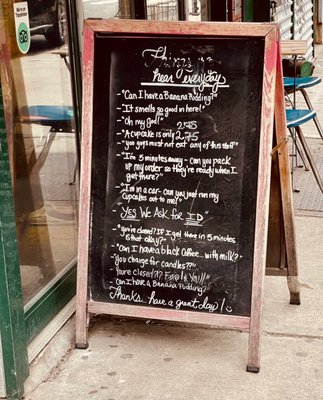 Things we
hear everyday
- "Can I have a Banana Pudding?"
- "It smells so good in here!"
- "Oh my god!" 2.95
- "A cupcake is only 2.75
- "you guys must not eat any of this stuff"
- "I'm 5 minutes away - can you pack
up my order so they're ready when I
get there?"
- "I'm in a car - can you just run my
cupcakes out to me?"
YES We Ask for ID
- "you're closed? If I get there in 5 minutes
is that okay?"
- "Can I have a black coffee... with milk?"
- "You charge for candles??"
- "You're closed??? F You!!"
- "Can I have a Banana Pudding?"
Thanks... have a great day!